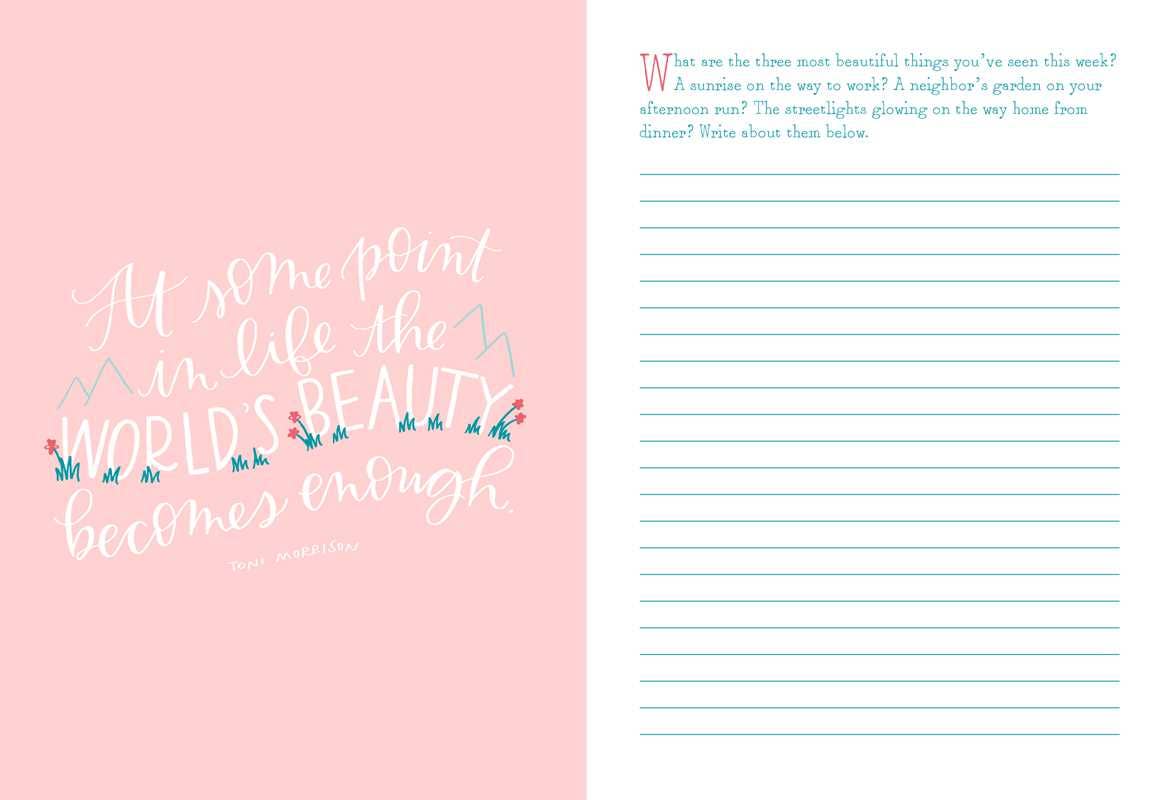 At some point
in life the
WORLD'S BEAUTY
becomes enough.
TONI MORRISON
What are the three most beautiful things you've seen this week?
A sunrise on the way to work? A neighbor's garden on your
afternoon run? The streetlights glowing on the way home from
dinner? Write about them below.